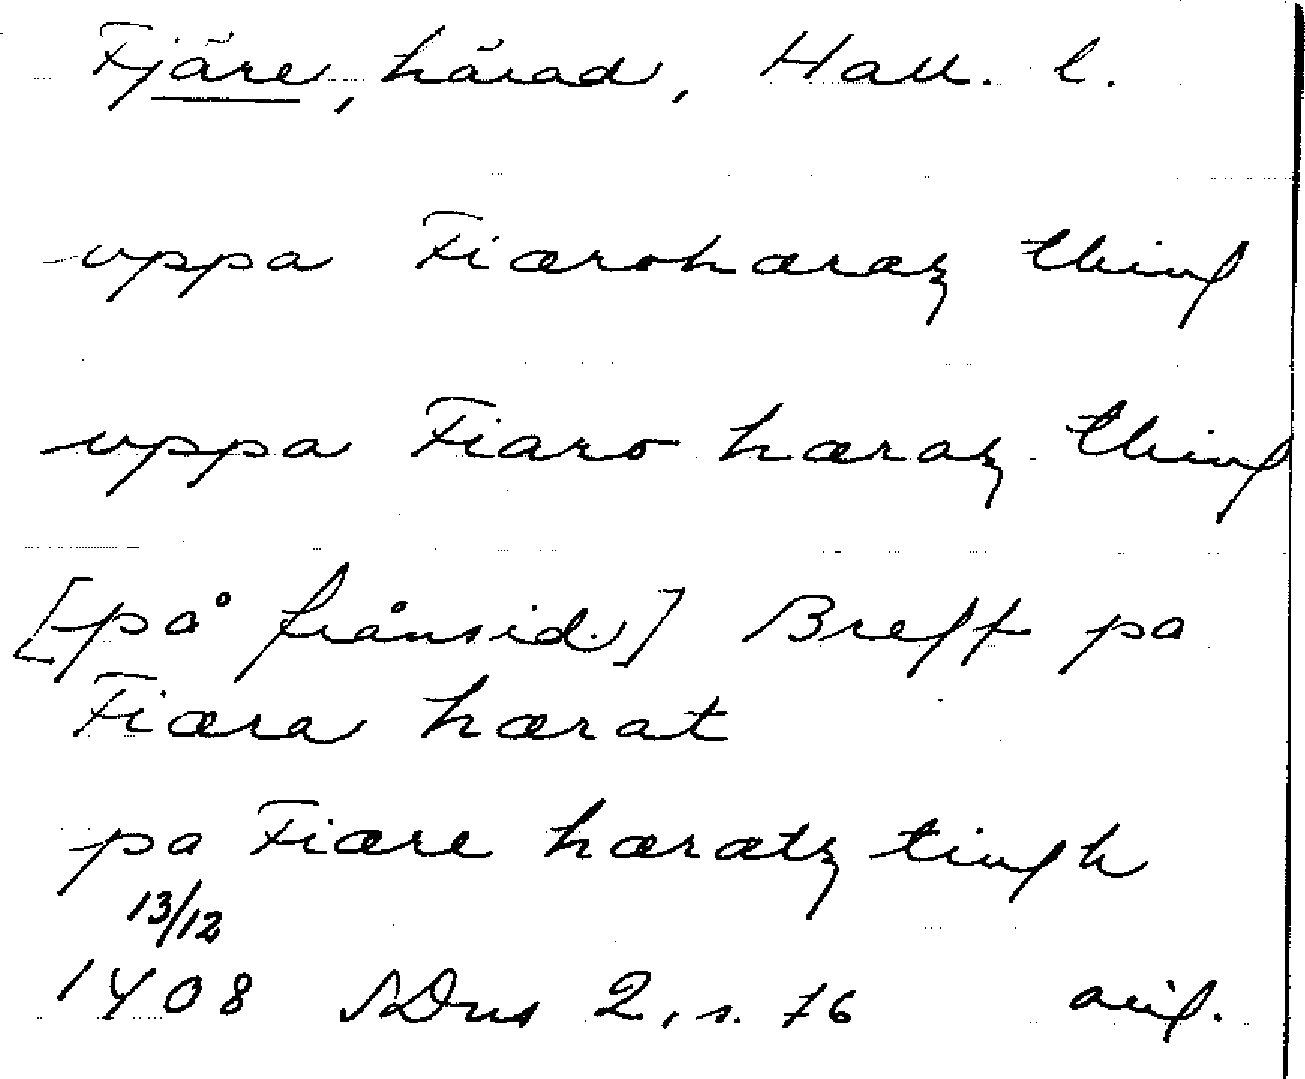 Fjäre, härad, Hall. l.
uppa Fiærohæraz thing
uppa Fiaro hæraz thing
[på frånsid.] Breff pa
Fiæra hærat
pa Fiære hæratz tingh
13/12
1408 SDns 2, s. 76 orig.